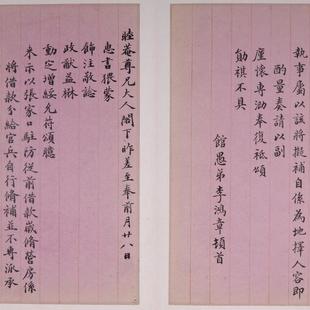 執事屬以該將擬補自係為地擇人容即
酌量奏請以副
廑懷專泐奉復祗頌
勛祺不具
館愚弟李鴻章頓首
睦菴尊兄大人閣下昨差至奉前月廿八日
惠書猥蒙
飾注敬諗
政猷益楙
動定增綏允符頌臆
來示以張家口駐防從前借款歲脩營房係
將借款分給官兵自行脩補並不專派承